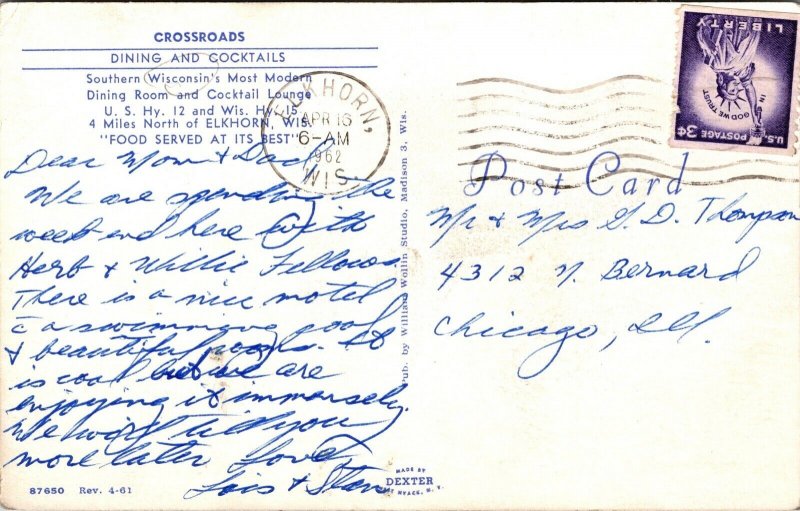 CROSSROADS
DINING AND COCKTAILS
Southern Wisconsin's Most Modern
Dining Room and Cocktail Lounge
U. S. Hy. 12 and Wis. Hy. 15
4 Miles North of ELKHORN, Wis.
"FOOD SERVED AT ITS BEST"
Dear Mom & Dad,
We are spending the
week end here with
Herb & Willie Fellows.
There is a nice motel
c̄ a swimming pool
& beautiful rooms. It
is cool but we are
enjoying it immensely.
We will tell you
more later Love,
Lois & Stan
87650 Rev. 4-61
MADE BY
DEXTER
WEST NYACK, N. Y.
Pub. by William Wollin Studio, Madison 3, Wis.
ELKHORN,
APR 16
6-AM
1962
WIS.
LIBERTY
IN GOD WE TRUST
U.S. POSTAGE 3¢
Post Card
Mr & Mrs G. D. Thompson
4312 N. Bernard
Chicago, Ill.